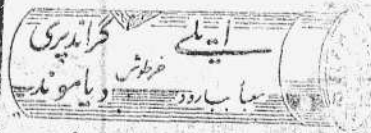 ایلے گراندپری
خرطوش
معبأ ببارود دیاموند